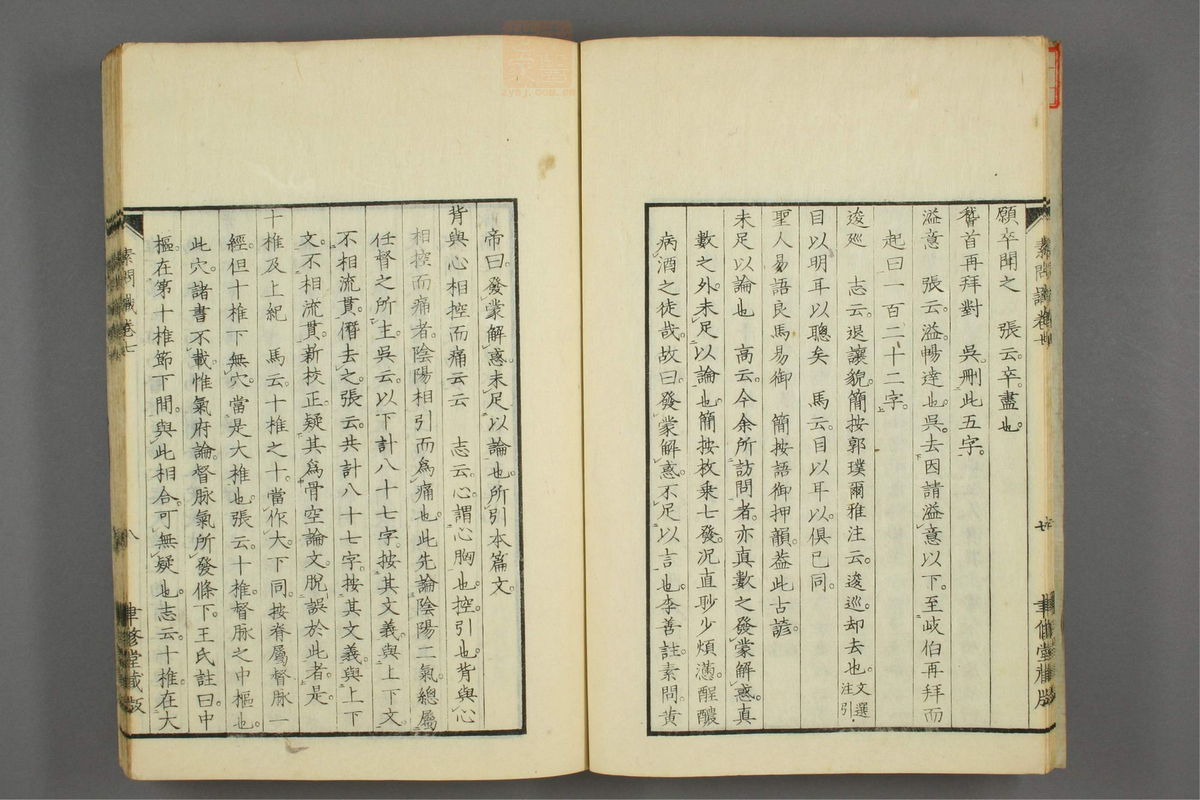 願卒聞之　張云卒盡也。
稽首再拜對　吳刪此五字。
溢意　張云溢暢達也。吳去因請溢意以下。至岐伯再拜而
起曰一百二十二字。
逡巡　志云退讓貌。簡按郭璞爾雅注云。逡巡却去也。文選注引
目以明耳以聰矣　馬云目以耳以俱已同
聖人易語良馬易御　簡按語御押韻。葢此古諺
未足以論也　高云今余所訪問者。亦真數之發蒙解惑。真
數之外。未足以論也。簡按枚乗七發。況直眇少煩懣。酲醲
病酒之徒哉。故曰。發蒙解惑。不足以言也。李善註。素問。黄
素問識卷七
聿修堂藏版
帝曰。發蒙解惑。未足以論也。所引本篇文。
背與心相控而痛云云　志云。心謂心胸也。控。引也。背與心
相控而痛者。陰陽相引而爲痛也。此先論陰陽二氣。總屬
任督之所主。吳云。以下計八十七字。按其文義。與上下文
不相流貫。僭去之。張云。共計八十七字。按其文義。與上下
文不相流貫。新校正。疑其爲骨空論文。脫誤於此者。是。
十椎及上紀　馬云十椎之十。當作大。下同。按脊屬督脉一
經。但十椎下無穴。當是大椎也。張云。十椎。督脉之中樞也。
此穴。諸書不載。惟氣府論督脉氣所發條下。王氏註曰。中
樞在第十椎節下間。與此相合。可無疑也。志云。十椎在大
素問識卷七
八
聿修堂藏版
zysj.com.cn